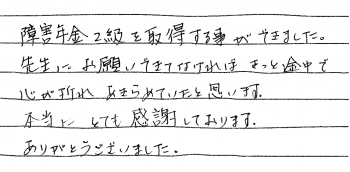 障害年金2級を取得する事ができました。
先生にお願いできてなければ きっと途中で
心が折れ あきらめていたと思います。
本当に とても 感謝しております。
ありがとうございました。